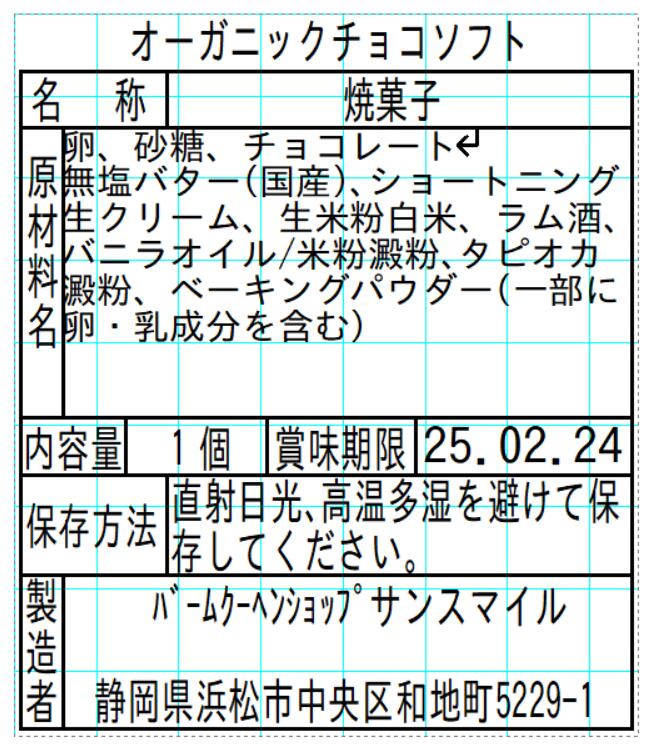 オーガニックチョコソフト
名 称 焼菓子
原材料名
卵、砂糖、チョコレート↵
無塩バター(国産)、ショートニング
生クリーム、生米粉白米、ラム酒、
バニラオイル/米粉澱粉、タピオカ
澱粉、ベーキングパウダー(一部に
卵・乳成分を含む)
内容量 1個 賞味期限 25.02.24
保存方法
直射日光、高温多湿を避けて保
存してください。
製造者
バームクーヘンショップサンスマイル
静岡県浜松市中央区和地町5229-1